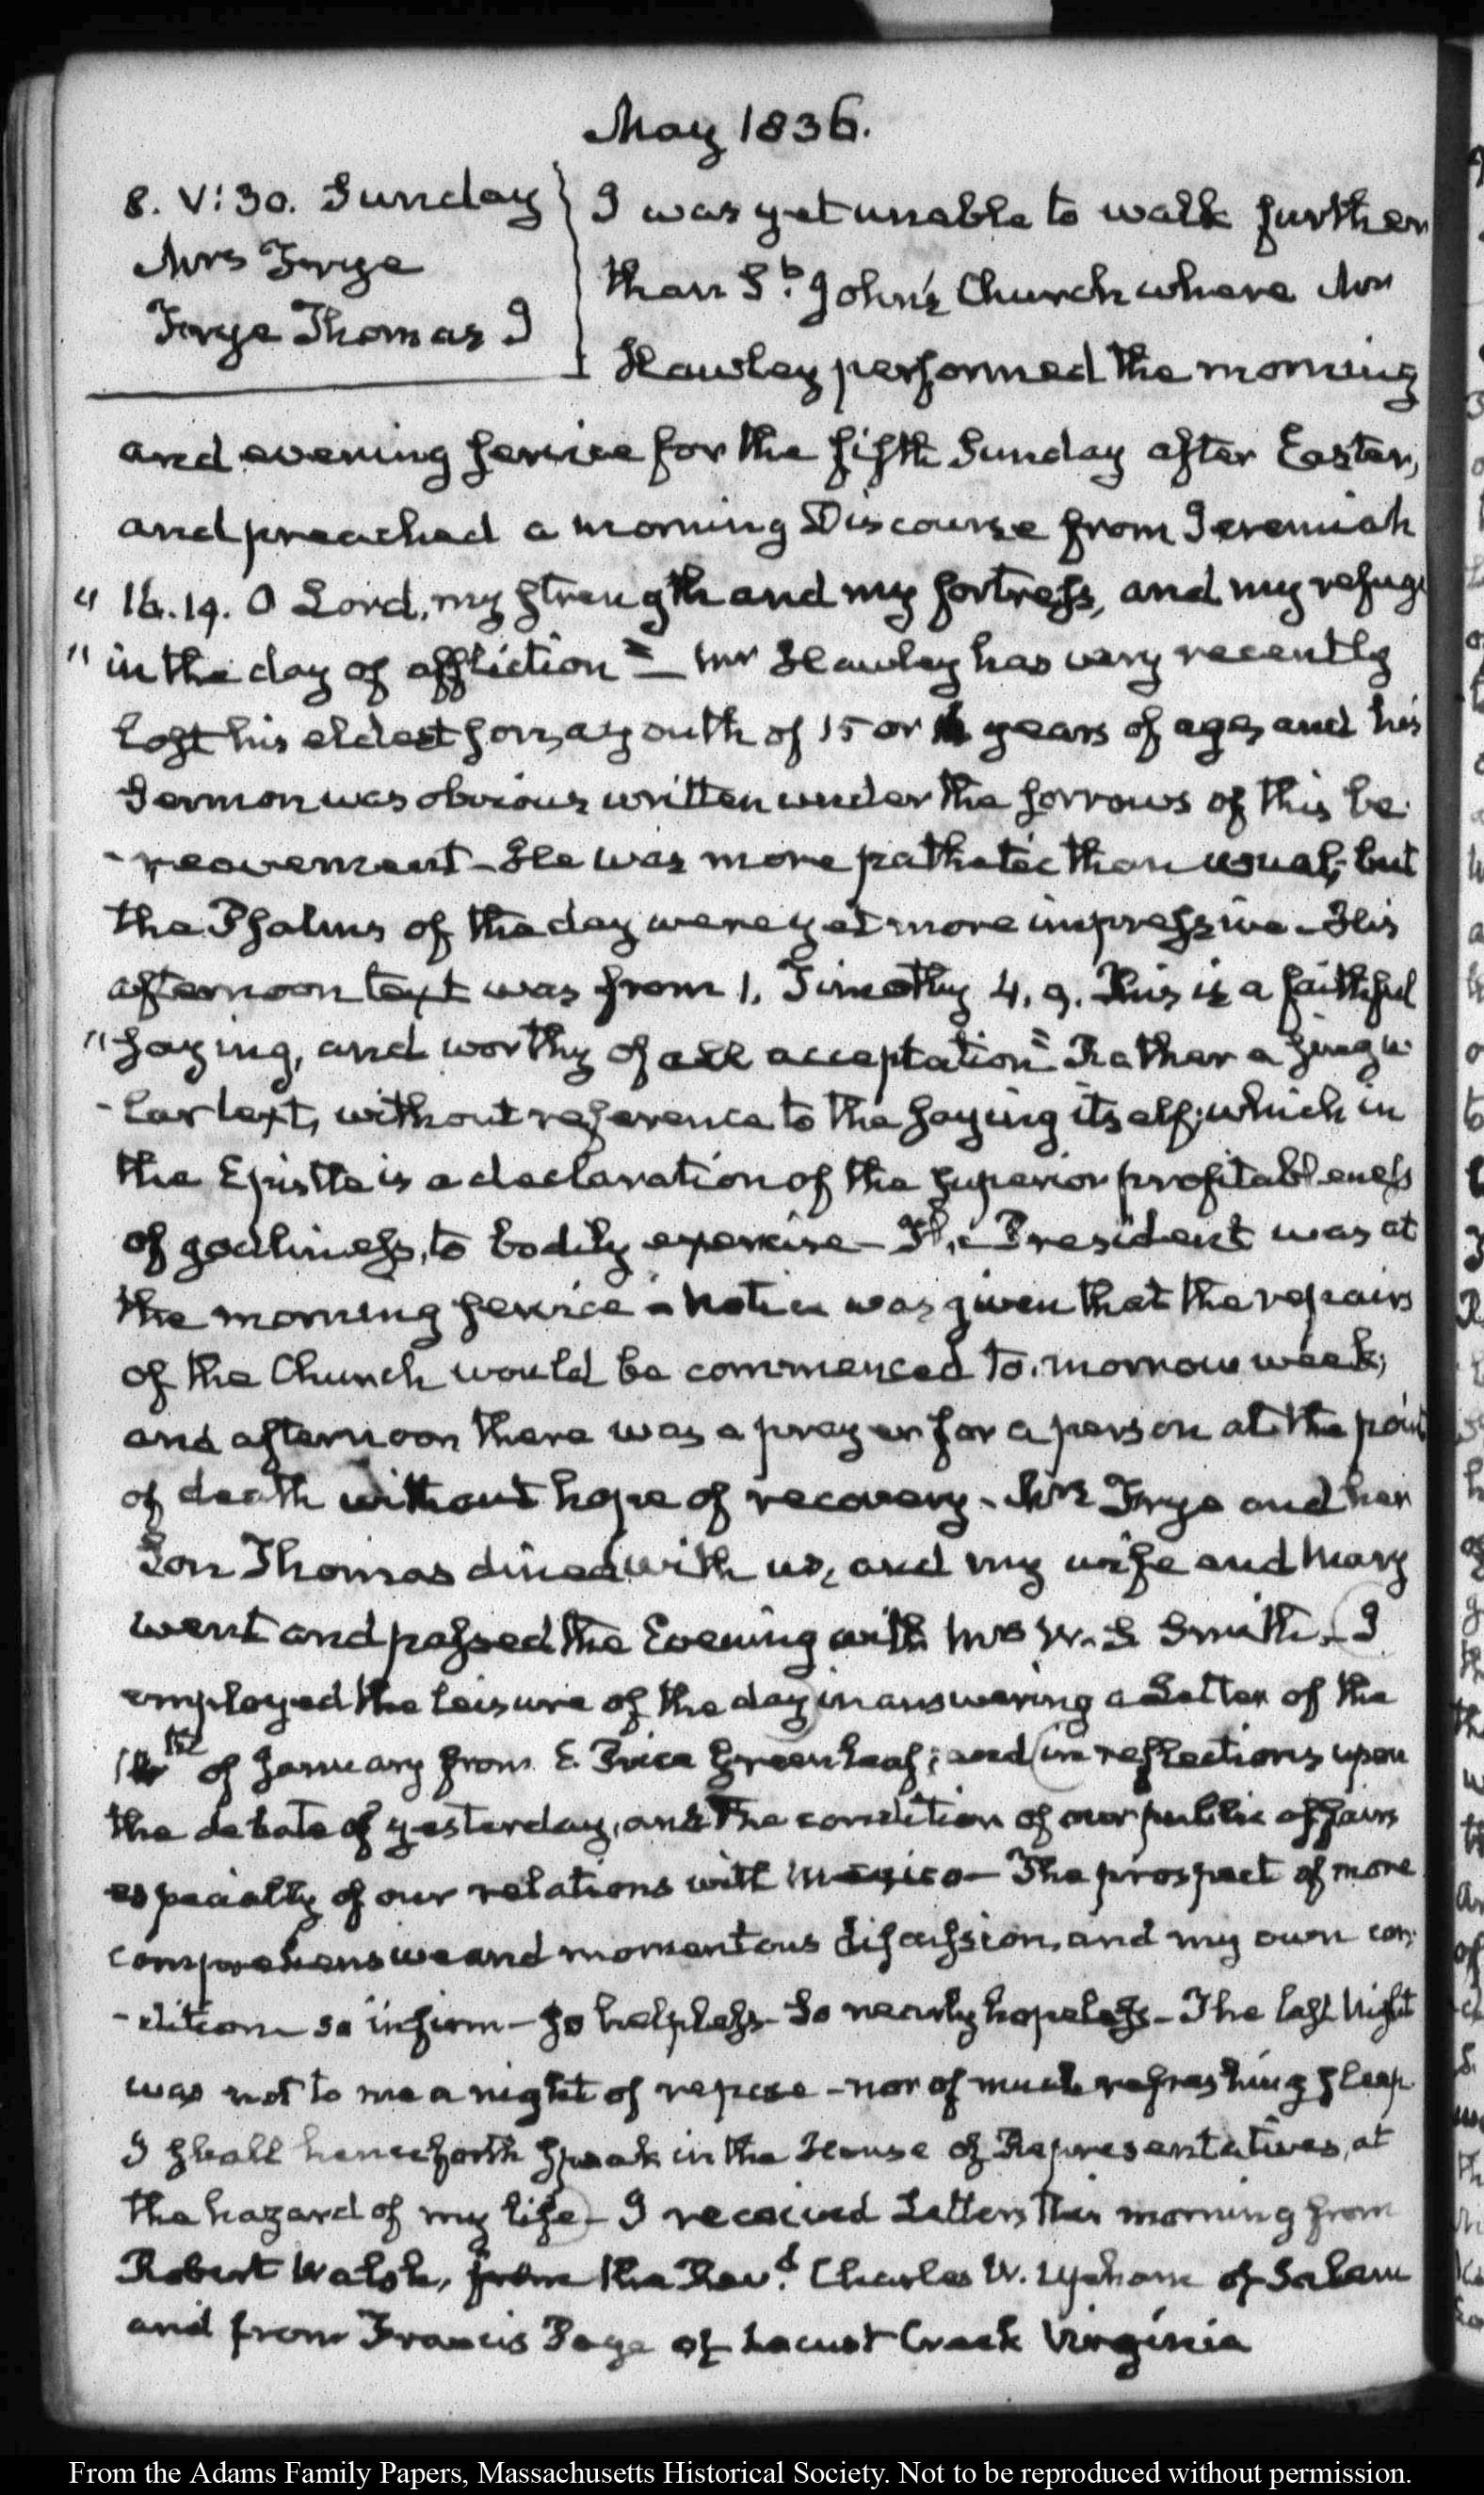 May 1836.
8. V:30. Sunday
Mrs Frye
Frye Thomas J
I was yet unable to walk further
than St. John's Church where Mr
Hawley performed the morning
and evening service for the fifth Sunday after Easter,
and preached a morning Discourse from Jeremiah
" 16.19. O Lord, my strength and my fortress, and my refuge
" in the day of affliction" — Mr Hawley has very recently
lost his eldest son, a youth of 15 or years of age, and his
Sermon was obvious written under the sorrows of this be-
-reavement — He was more pathetic than usual; but
the Psalms of the day were yet more impressive — His
afternoon text was from 1. Timothy 4. 9. This is a faithful
" saying, and worthy of all acceptation" Rather a singu-
-lar text, without reference to the saying itself; which in
the Epistle is a declaration of the superior profitableness
of godliness, to bodily exercise — The President was at
the morning service — Notice was given that the repairs
of the Church would be commenced to-morrow week;
and afternoon there was a prayer for a person at the point
of death without hope of recovery — Mrs Frye and her
Son Thomas dined with us, and my wife and Mary
went and passed the Evening with Mrs W. S Smith — I
employed the leisure of the day in answering a Letter of the
of January from E. Price Greenleaf; and in reflections upon
the debate of yesterday, and the condition of our public affairs
especially of our relations with Mexico — The prospect of more
comprehensive and momentous discussion, and my own con-
-dition so infirm — so helpless — so nearly hopeless — The last Night
was not to me a night of repose — nor of much refreshing sleep
I shall henceforth speak in the House of Representatives, at
the hazard of my life — I received Letters this morning from
Robert Walsh, from the Revd. Charles W. Upham of Salem
and from Francis Page of Locust Creek Virginia
From the Adams Family Papers, Massachusetts Historical Society. Not to be reproduced without permission.